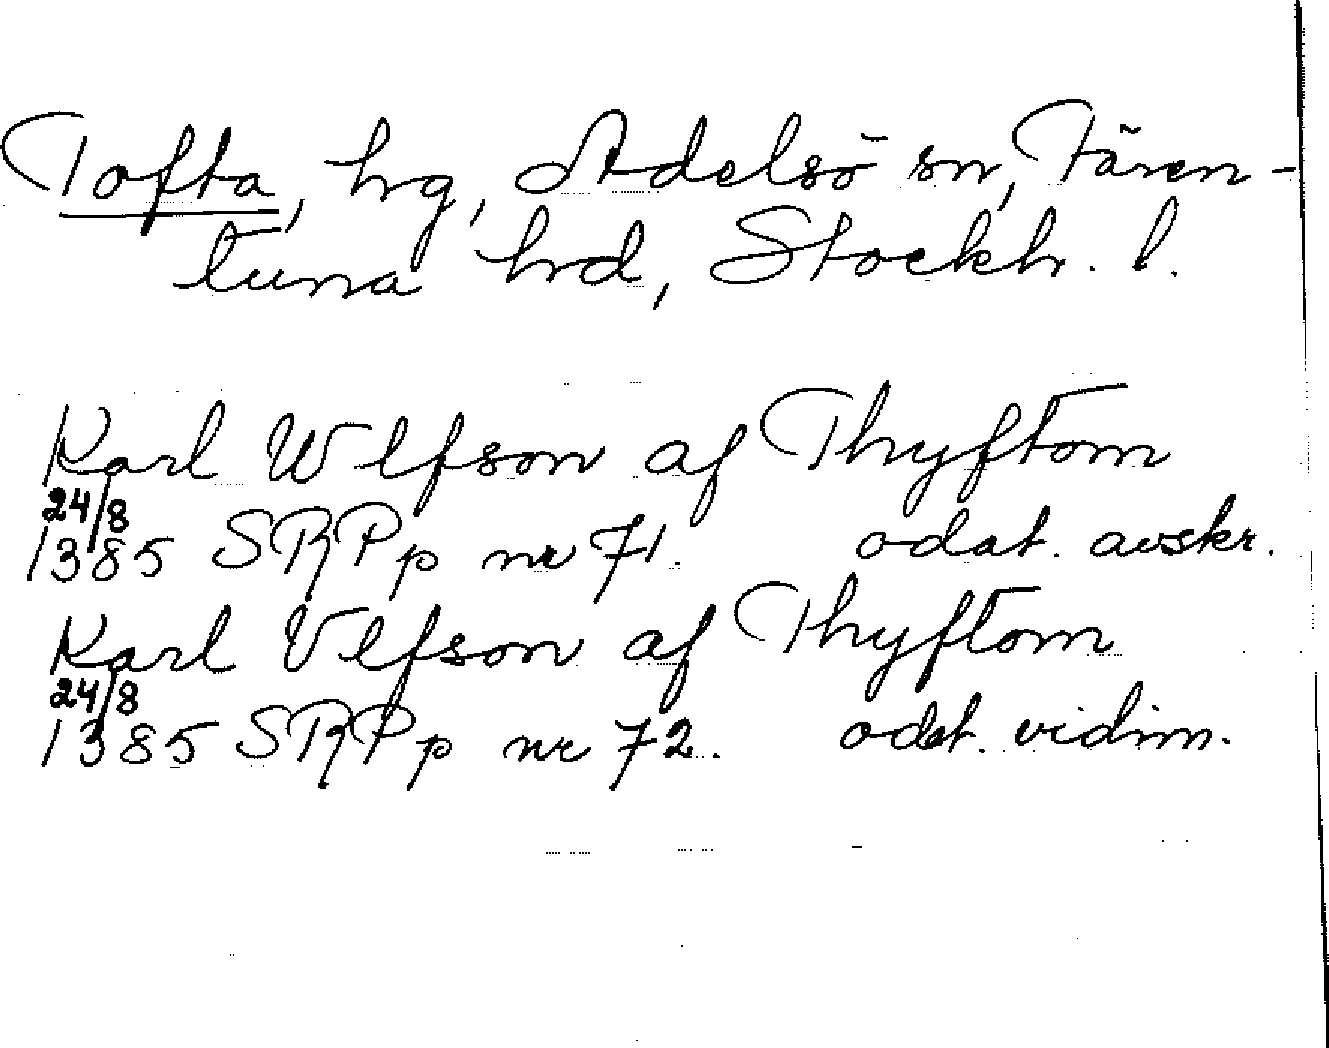 Tofta, hg, Adelsö sn, Fären-
tuna hrd, Stockh. l.
Karl Wlfson af Thyftom
24/8
1385 SRPp nr 71. odat. avskr.
Karl Vlfson af Thyftom
24/8
1385 SRPp nr 72. odat. vidim.